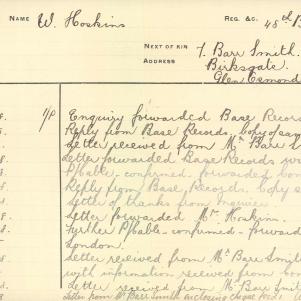 NAME W. Hoskins REG. &C. 48th B
NEXT OF KIN T. Barr Smith.
ADDRESS Birksgate.
Glen Osmond
1/p Enquiry forwarded Base Record
Reply from Base Records, copy of say
Letter received from Mr Barr S
Letter forwarded Base Records
P/bable - confirmed. forwarded
Reply from Base Records. Copy
Letter of thanks from inquirer
Letter forwarded Mr. Hoskins.
Further P/bable - confirmed - forward
London.
Letter received from Mr Barr Smith
with information received from
Letter received from Mr Barr Smith
Letter from Mr Barr Smith enclosing cheque